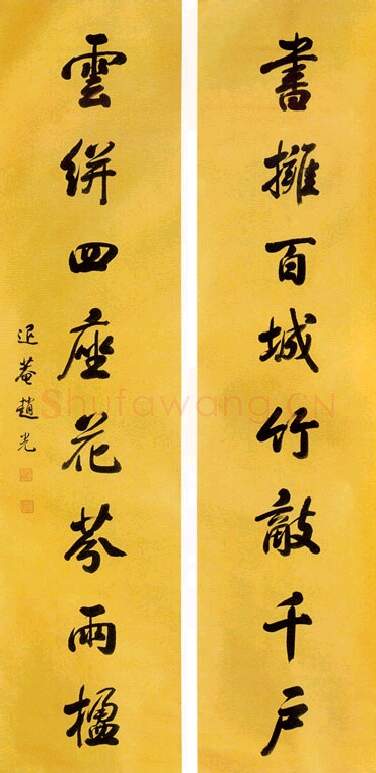 書擁百城竹敵千戶
雲絣四座花芬兩楹
退菴趙光
Shufawang.CN